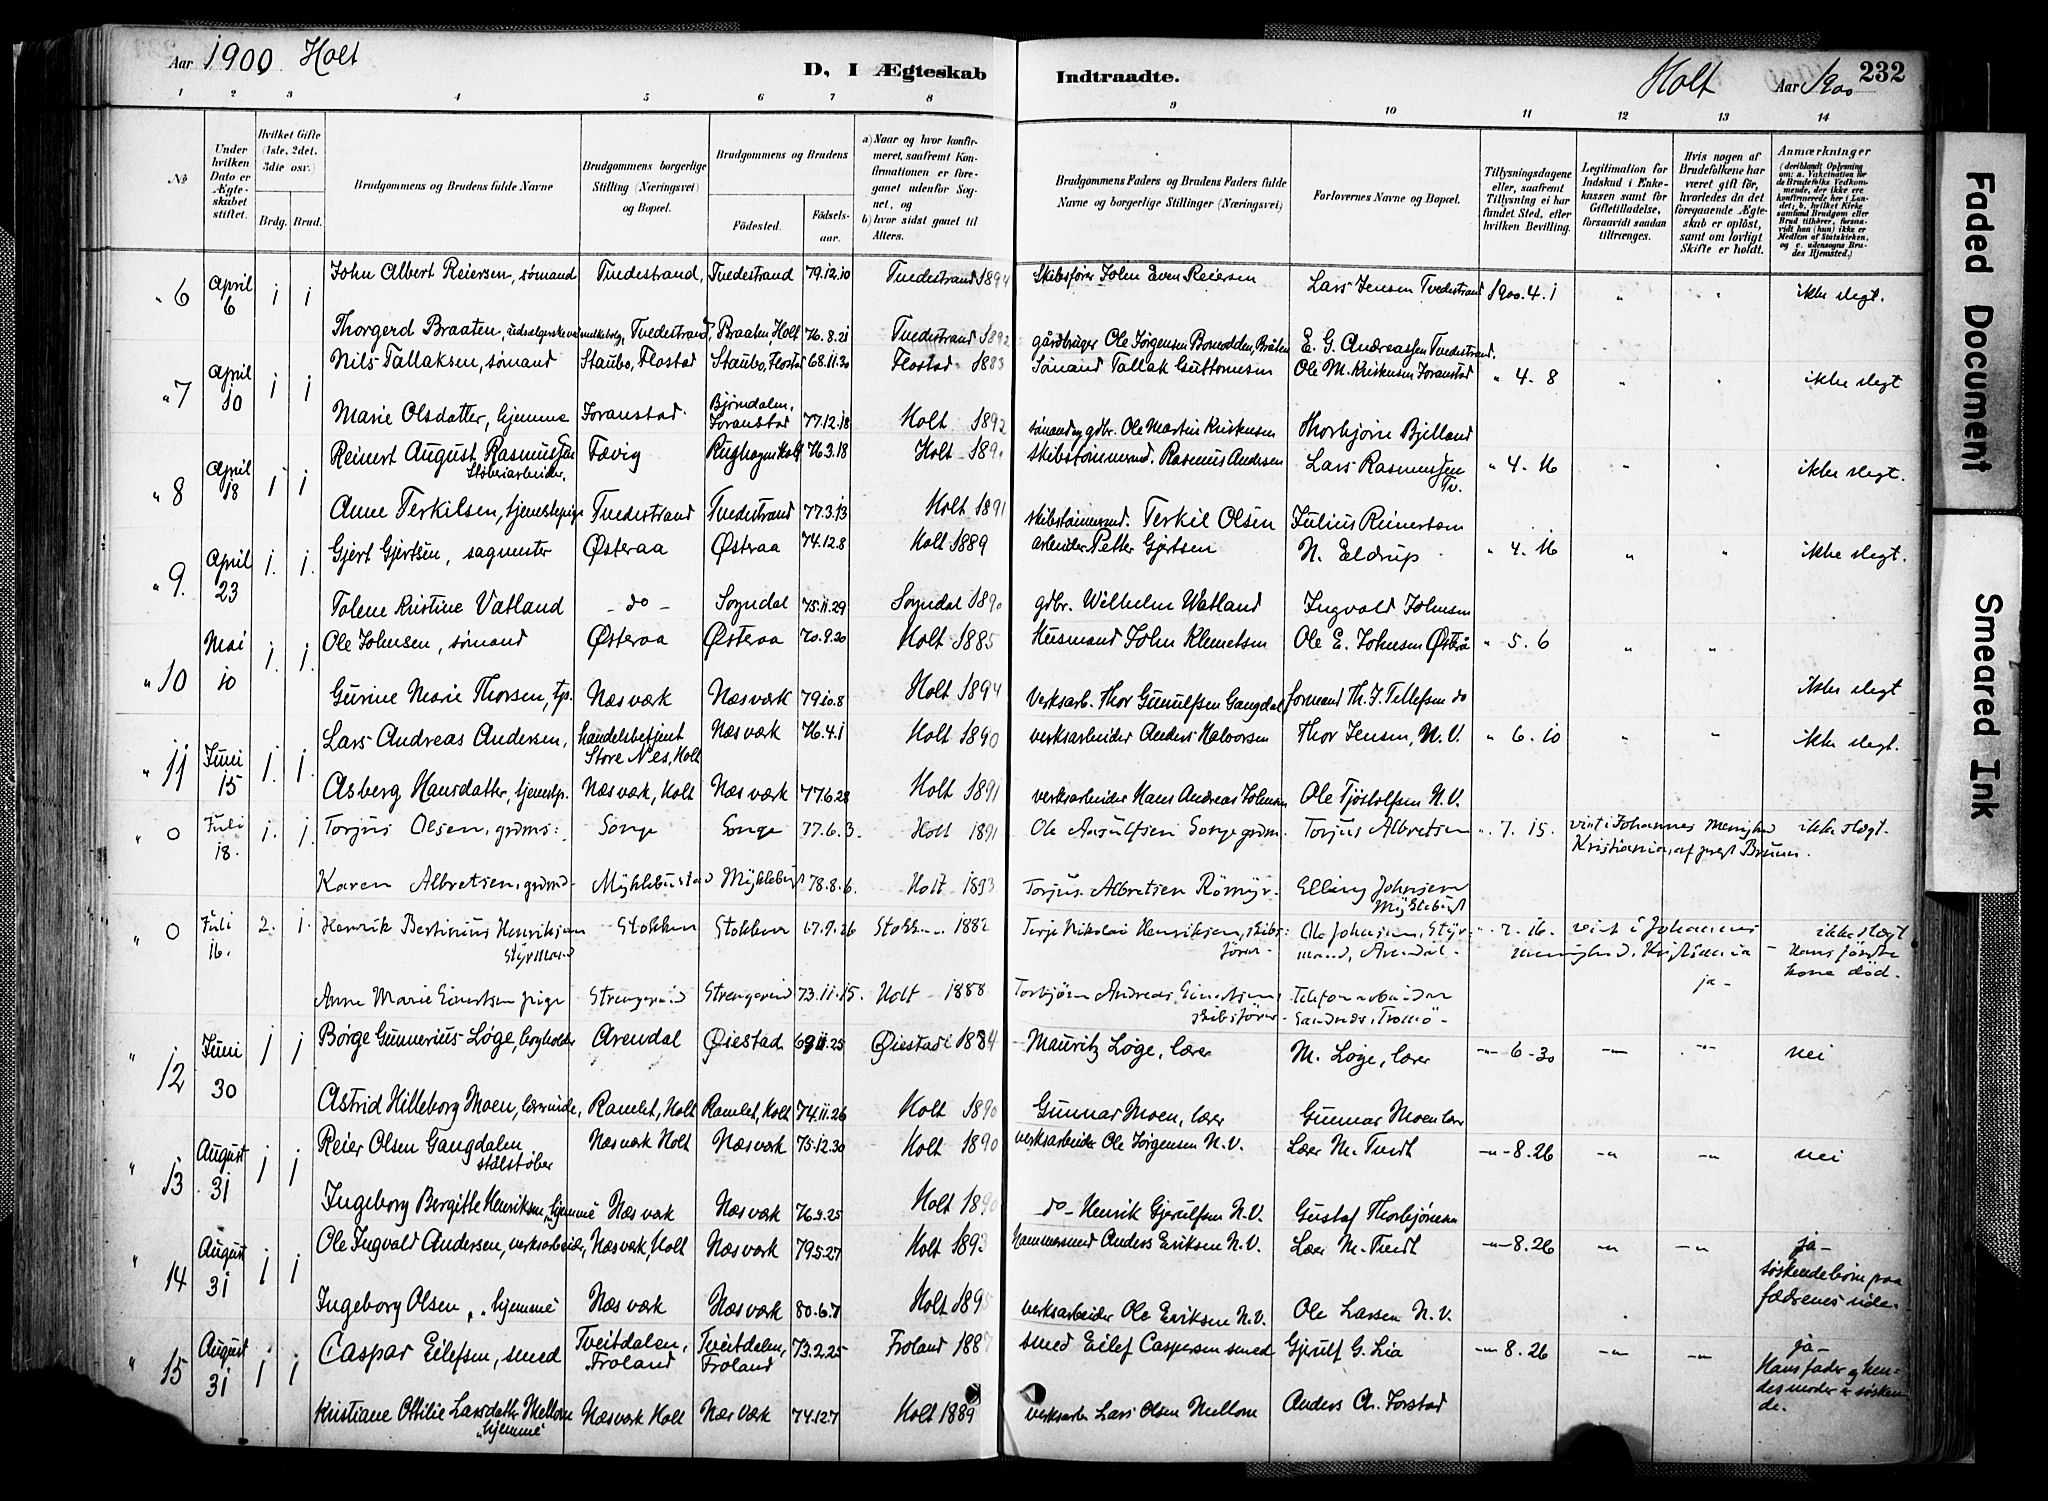 Aar 1900 Holt
D, I Ægteskab Indtraadte.
Holt Aar 1900 232
1 2 3 4 5 6 7 8 9 10 11 12 13 14
№
Under hvilken Dato er Ægteskabet stiftet.
Hvilket Gifte (1ste, 2det, 3die osv.)
Brdg. Brud.
Brudgommens og Brudens fulde Navne
Brudgommens borgerlige Stilling (Næringsvei) og Bopæl.
Brudgommens og Brudens
Fødested. Fødselsaar.
a) Naar og hvor konfirmeret, saafremt Konfirmationen er foregaaet udenfor Sognet, og
b) hvor sidst gaaet til Alters.
Brudgommens Faders og Brudens Faders fulde Navne og borgerlige Stillinger (Næringsvei)
Forlovernes Navne og Bopæl.
Tillysningsdagene eller, saafremt Tillysning ei har fundet Sted, efter hvilken Bevilling.
Legitimation for Indskud i Enkekassen samt for Giftetilladelse, forsaavidt saadan tiltrænges.
Hvis nogen af Brudefolkene har været gift før, hvorledes da det foregaaende Ægteskab er opløst, samt om lovligt Skifte er holdt.
Anmærkninger (deriblandt Oplysning om: a. Vaccination for de Brudefolks Vedkommende, der ikke ere konfirmerede her i Landet; b. hvilket Kirkesamfund Brudgom eller Brud tilhører, forsaavidt han (hun) ikke er Medlem af Statskirken, og c. udensogns Brudes Hjemsted.)
" 6 April 6 1 1 John Albert Reiersen, sømand Tvedestrand, Tvedestrand 79.12.10 Tvedestrand 1894 Skibsfører John Even Reiersen Lars Jensen Tvedestrand 1900.4.1 " " ikke slegt.
Thorgerd Braaten, Tvedestrand, Braaten, Holt 76.8.21 Tvedestrand 1892 gårdbruger Ole Jørgensen Bråten E. G. Andreassen Tvedestrand.
" 7 April 10 1 1 Nils Tallaksen, sømand Staubo, Flostad Staubo, Flostad 68.11.30 Flostad 1883 Sømand Tallak Guttormsen Ole M. Kristensen Joranstad " 4. 8 " " ikke slegt
Marie Olsdatter, hjemme Joranstad. Bjørndalen, Joranstad 77.12.18 Holt 1892 sømand og gdbr. Ole Martin Kristensen Thorbjørn Bjelland
" 8 April 18 1 1 Reinert August Rasmussen Støberiarbeider. Fævig Holt 76.3.18 Holt 1890 skibstømmermd. Rasmus Andersen Lars Rasmussen Tv. " 4. 16 " " ikke slegt.
Anne Terkilsen, tjenestepige Tvedestrand Tvedestrand 77.3.13 Holt 1891 skibstømmermd. Terkil Olsen Julius Reinertsen
" 9. April 23 1. 1. Gjert Gjertsen, sagmester Østeraa Østeraa 74.12.8 Holt 1889 arbeider Petter Gjertsen N. Eldrup " 4. 16 " " ikke slegt.
Tolene Kristine Vatland - do - Sogndal 75.11.29 Sogndal 1890 gdbr. Wilhelm Watland Ingvald Johnsen
" 10 Mai 10 1. 1. Ole Johnsen, sømand Østeraa Østeraa 70.9.20 Holt 1885 Husmand John Klemetsen Ole E. Johnsen Østerå " 5. 6 " "
Gurine Marie Thorsen, tps. Næsværk Næsværk 79.10.8 Holt 1894 verksarb. Thor Gunulfsen Gangdal formand Th. J. Tellefsen do ikke slegt
" 11 Juni 15 1. 1. Lars Andreas Andersen, handelsbetjent Store Nes, Holt Næsværk 76.4.1 Holt 1890 verksarbeider Anders Halvorsen Thor Jensen, N. V. " 6. 10 " " ikke slegt.
Asberg Hansdatter, tjenestp. Næsværk, Holt Næsværk 77.6.28 Holt 1891 verksarbeider Hans Andreas Johnsen Ole Tjøstolfsen N. V.
" 0 Juli 18. 1. 1. Torjus Olsen, grdms: Songe Songe 77.6.3. Holt 1891 Ole Aasulfsen Songe grdm. Torjus Albretsen " 7. 15. viet i Johannes Menighed Kristiania, af prest Bruun. ikke slægt.
Karen Albretsen, grdmd. Myklebustad Myklebust 78.8.6. Holt 1893 Torjus Albretsen Rømyr. Elling Johnsen Myklebust
" 0 Juli 16. 2. 1. Henrik Bertinius Henriksen Styrmand Stokken Stokken 67.9.26 Stokken 1882 Terje Nikolai Henriksen, skibsfører Ole Johnsen, Styrmand, Arendal. " 7. 16. viet i Johannes menighed, Kristiania ja - ikke slægt - Hans første kone død.
Anne Marie Einertsen pige Strengereid Strengereid 73.11.15. Holt 1888 Torbjørn Andreas Einertsen, skibsfører Telefonarbeider Sandnes, Tromø.
" 12 Juni 30 1 1 Børge Gunnerius Løge, Arendal Øiestad 69.11.25 Øiestad 1884 Mauritz Løge, lærer M. Løge, lærer -"- 6 - 30 -"- -"- nei
Astrid Hilleborg Moen, lærerinde, Ramlet, Holt Ramlet, Holt 74.11.26 Holt 1890 Gunnar Moen, lærer Gunnar Moen lærer
" 13 August 31 1 1 Reier Olsen Gangdalen stålstøber Næsværk Holt Næsværk 75.12.30 Holt 1890 verksarbeider Ole Jørgensen N. V. Lærer M. Tvedt -"- 8. 26 -"- -"- nei
Ingeborg Bergitte Henriksen, hjemme Næsværk Næsværk 76.9.25 Holt 1890 do - Henrik Gjerulfsen N. V. Gustaf Thorbjørnsen
" 14 August 31 1 1 Ole Ingvald Andersen, verksarbeider, Næsværk, Holt Næsværk 79.5.27 Holt 1893 Hammersmed Anders Eriksen N. V. Lærer M. Tvedt -"- 8. 26 -"- -"- ja - søskendebørn paa fædrenes side.
Ingeborg Olsen, "hjemme" Næsværk Næsværk 80.6.7 Holt 1895 verksarbeider Ole Eriksen N. V. Ole Larsen N. V.
" 15 August 31 1 1 Caspar Eilefsen, smed Tveitdalen, Froland Tveitdalen, Froland 73.2.25 Froland 1887 smed Eilef Caspersen smed Gjerulf G. Lia -"- 8. 26 -"- -"- ja - Hans fader og hendes moder er søskende.
Kristiane Ottilie Larsdatter Mellom "hjemme" Næsværk Holt Næsværk 74.12.7 Holt 1889 verksarb. Lars Olsen Mellom Anders A. Forstad
Faded Document
Smeared Ink